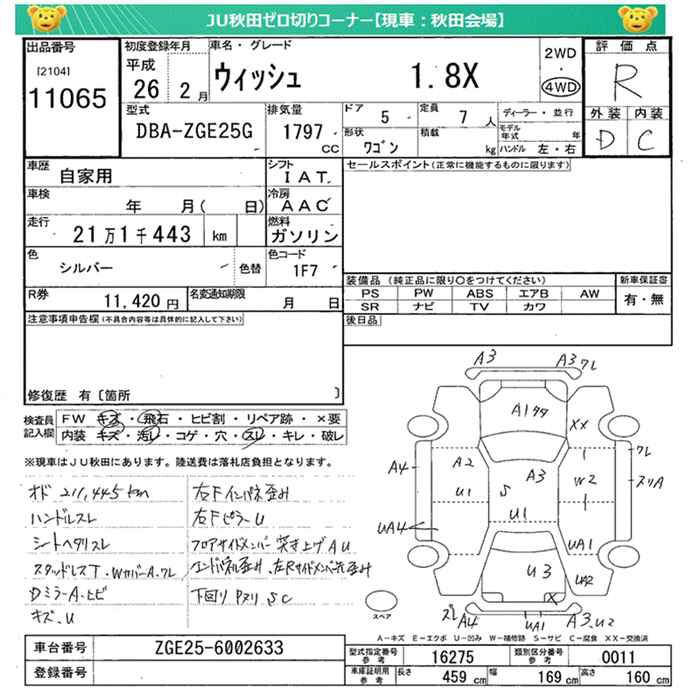 JU秋田ゼロ切りコーナー【現車：秋田会場】
出品番号
[2104]
11065
初度登録年月
平成
26 2月
車名・グレード
ウィッシュ 1.8X
2WD
・
4WD
評価点
R
外装 内装
D C
型式
DBA-ZGE25G
排気量
1797 cc
ドア
5
定員
7 人
形状
ワゴン
積載
kg
ディーラー・並行
モデル年式 年
ハンドル 左・右
車歴
自家用
シフト
IAT
車検
年 月( 日)
冷房
AAC
走行
21万1千443 km
燃料
ガソリン
色
シルバー
色替
色コード
1F7
R券
11,420 円
名変通知期限
月 日
セールスポイント(正常に機能するものに限ります)
装備品 (純正品に限り○をつけてください)
PS PW ABS エアB AW
SR ナビ TV カワ
新車保証書
有・無
後日品
注意事項申告欄(不具合内容等は具体的に記入して下さい)
修復歴 有〔箇所 〕
検査員記入欄
FW キズ・飛石・ヒビ割・リペア跡・×要
内装 キズ・汚レ・コゲ・穴・スレ・キレ・破レ
※現車はJU秋田にあります。陸送費は落札店負担となります。
オド 211,445km
ハンドルスレ
シートヘタリスレ
スタッドレスT・WカバーA・ワレ
DミラーA・ヒビ
キズ、U
右Fインパネ歪み
右FピラーU
フロアサイドメンバー突き上げAU
エンドパネル歪み、左Rサイドメンバー先歪み
下回りPヌリ SC
A3
A3ワレ
A1
XX
A2
U1
A4
UA4
S
A3
U1
W2
ワレ
スリA
UA1
UA2
U3
X
ズレ
A4
UA1
A3、U2
スペア
A-キズ E-エクボ U-凹み W-補修跡 S-サビ C-腐食 XX-交換済
車台番号
ZGE25-6002633
登録番号
型式指定番号 参考
16275
類別区分番号 参考
0011
車庫証明用 参考
長さ 459 cm
幅 169 cm
高さ 160 cm